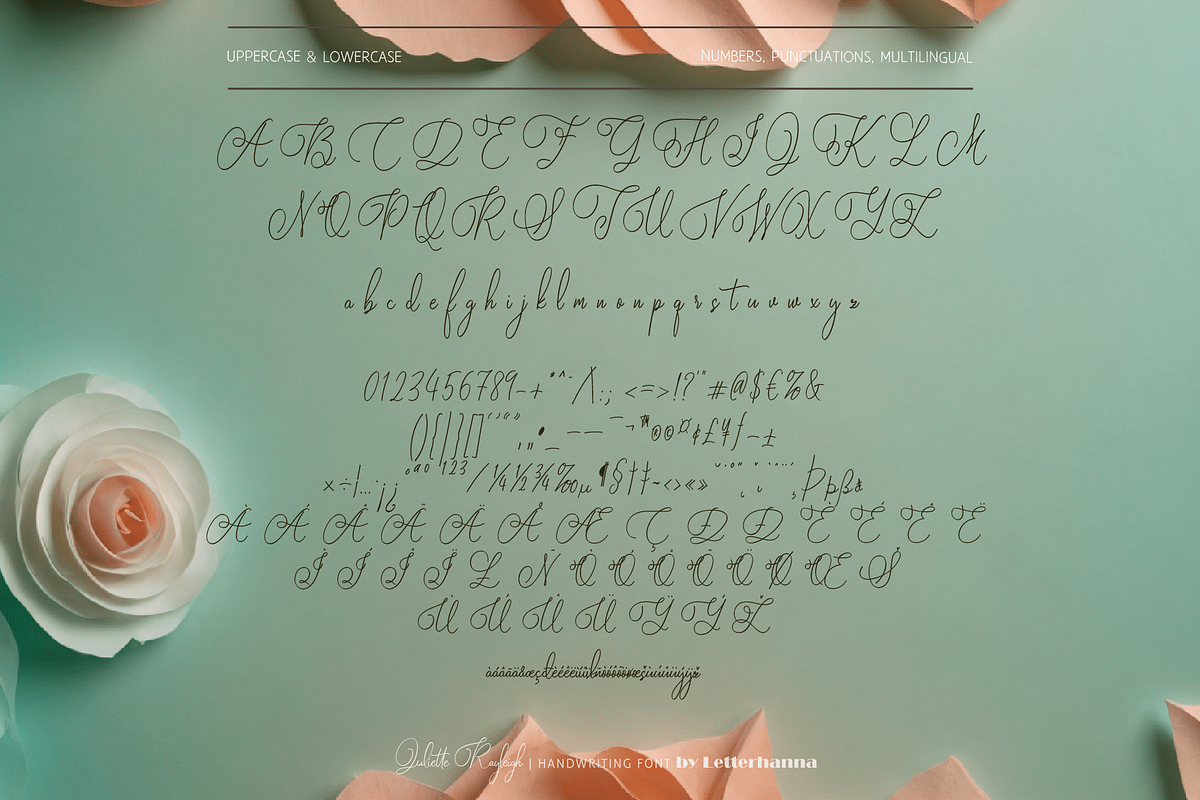 UPPERCASE & LOWERCASE
NUMBERS, PUNCTUATIONS, MULTILINGUAL
A B C D E F G H I J K L M
N O P Q R S T U V W X Y Z
a b c d e f g h i j k l m n o n p q r s t u v w x y z
0123456789-+*^~/\:;<=>!?'"#@$€%&
(){|}[]‘’“”‚„•_–—¯¬™©®¤¢£¥ƒ−±
×÷¦…·¡¿ªº¹²³⁄¼½¾‰µ¶§†‡~‹›«»ÞþßƏ
À Á Â Ã Ä Å Æ Ç Ð Đ È É Ê Ë
Ì Í Î Ï Ł Ñ Ò Ó Ô Õ Ö Ø Œ Š
Ù Ú Û Ü Ÿ Ý Ž
Juliette Rayleigh | HANDWRITING FONT by Letterhanna